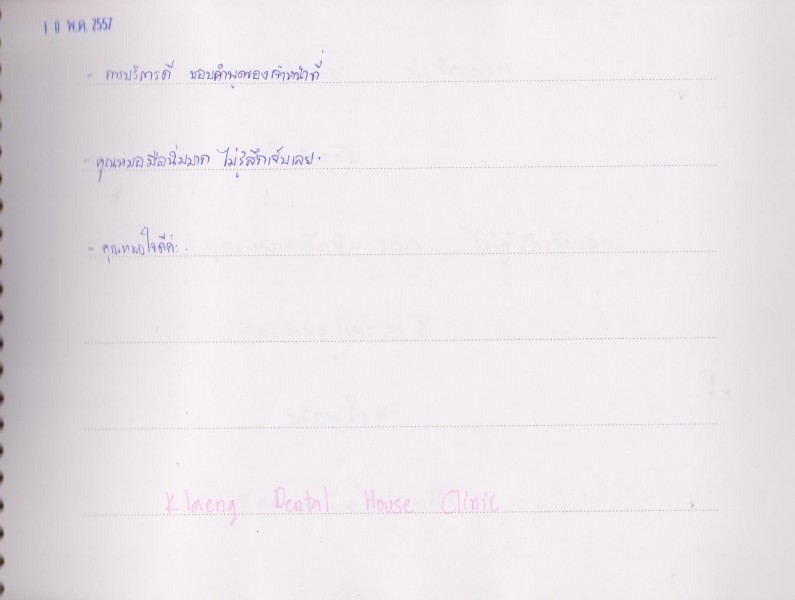 10 พ.ค. 2557
- การบริการดี ชอบคำพูดของเจ้าหน้าที่
- คุณหมอมือนิ่มมาก ไม่รู้สึกเจ็บเลย.
- คุณหมอใจดีค่ะ.
Klaeng Dental House Clinic